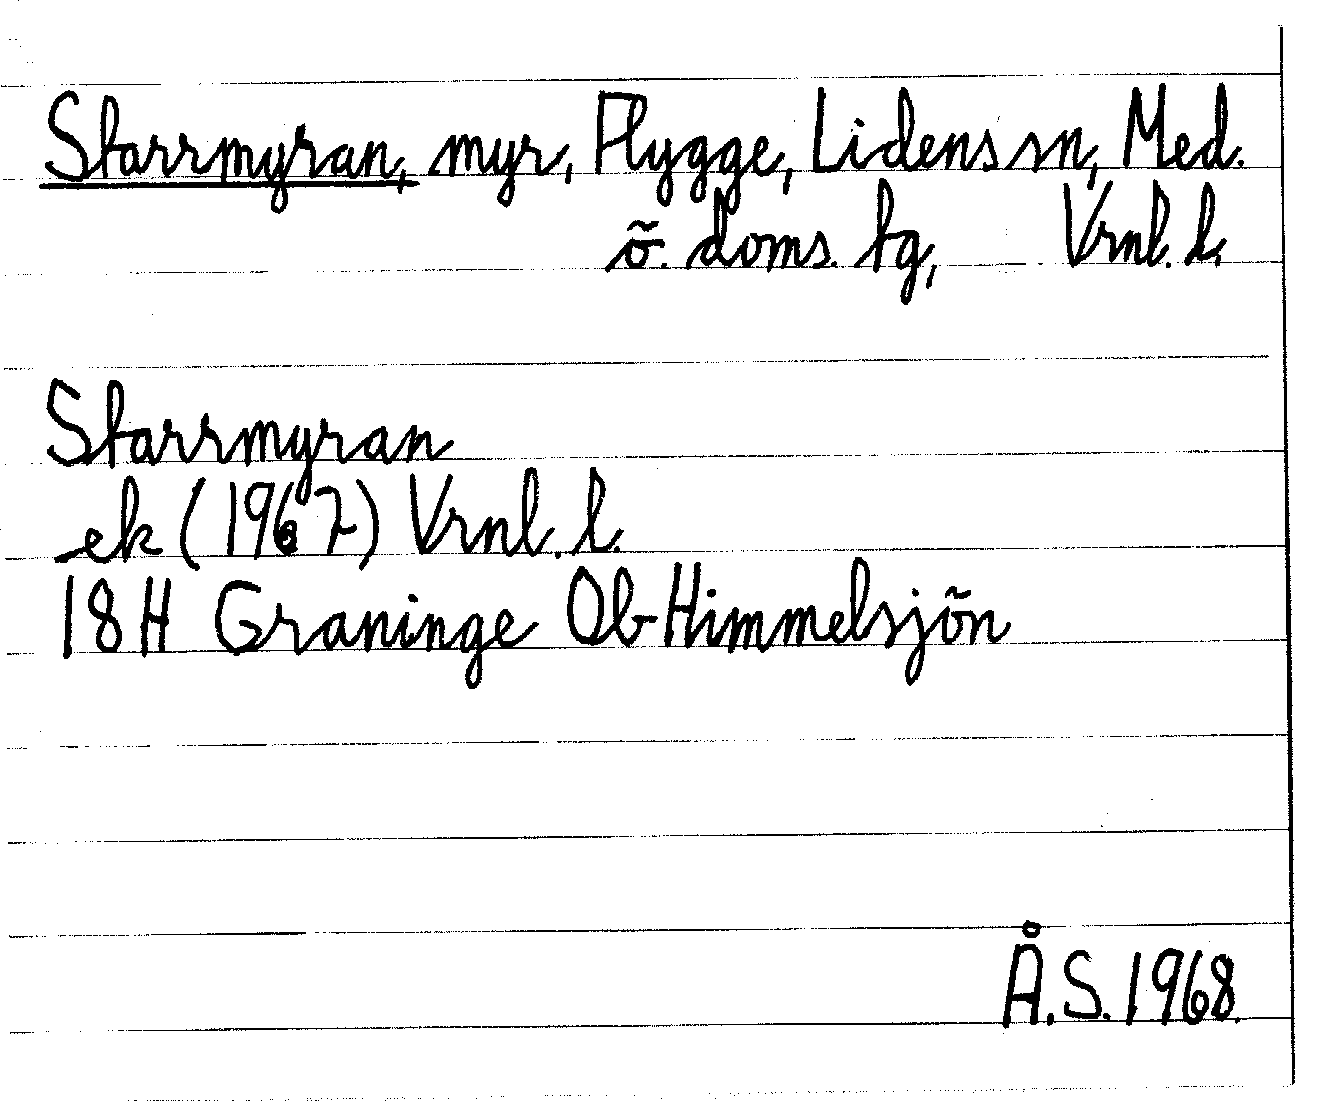 Starrmyran, myr, Flygge, Lidens sn, Med.
ö. doms. tg, Vrnl. l.
Starrmyran
ek (1967) Vrnl. l.
18H Graninge Ob-Himmelsjön
Å.S. 1968.